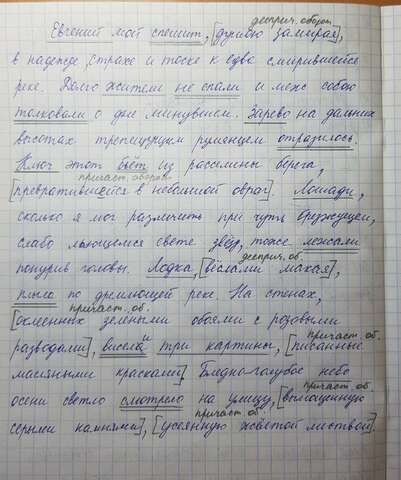 дееприч. оборот.
Евгений мой спешит, [душою замирая],
в надежде, страхе и тоске к едва смирившейся
реке. Долго жители не спали и меж собою
толковали о дне минувшем. Зарево на дальних
высотах трепещущим румянцем отразилось.
Ключ этот бьёт из расселины берега,
причаст. оборот
[превратившейся в небольшой овраг]. Лошади,
сколько я мог различить при чуть брезжущем,
слабо льющемся свете звёзд, тоже лежали
дееприч. об.
понурив головы. Лодка, [вёслами махая],
плыла по дремлющей реке. На стенах,
причаст. об.
[оклеенных зелеными обоями с розовыми
причаст. об.
разводами], висели три картины, [писанные
масляными красками]. Бледно-голубое небо
причаст. об
осени светло смотрело на улицу, [вымощенную
причаст. об
серыми камнями], [усеянную жёлтой листвой].